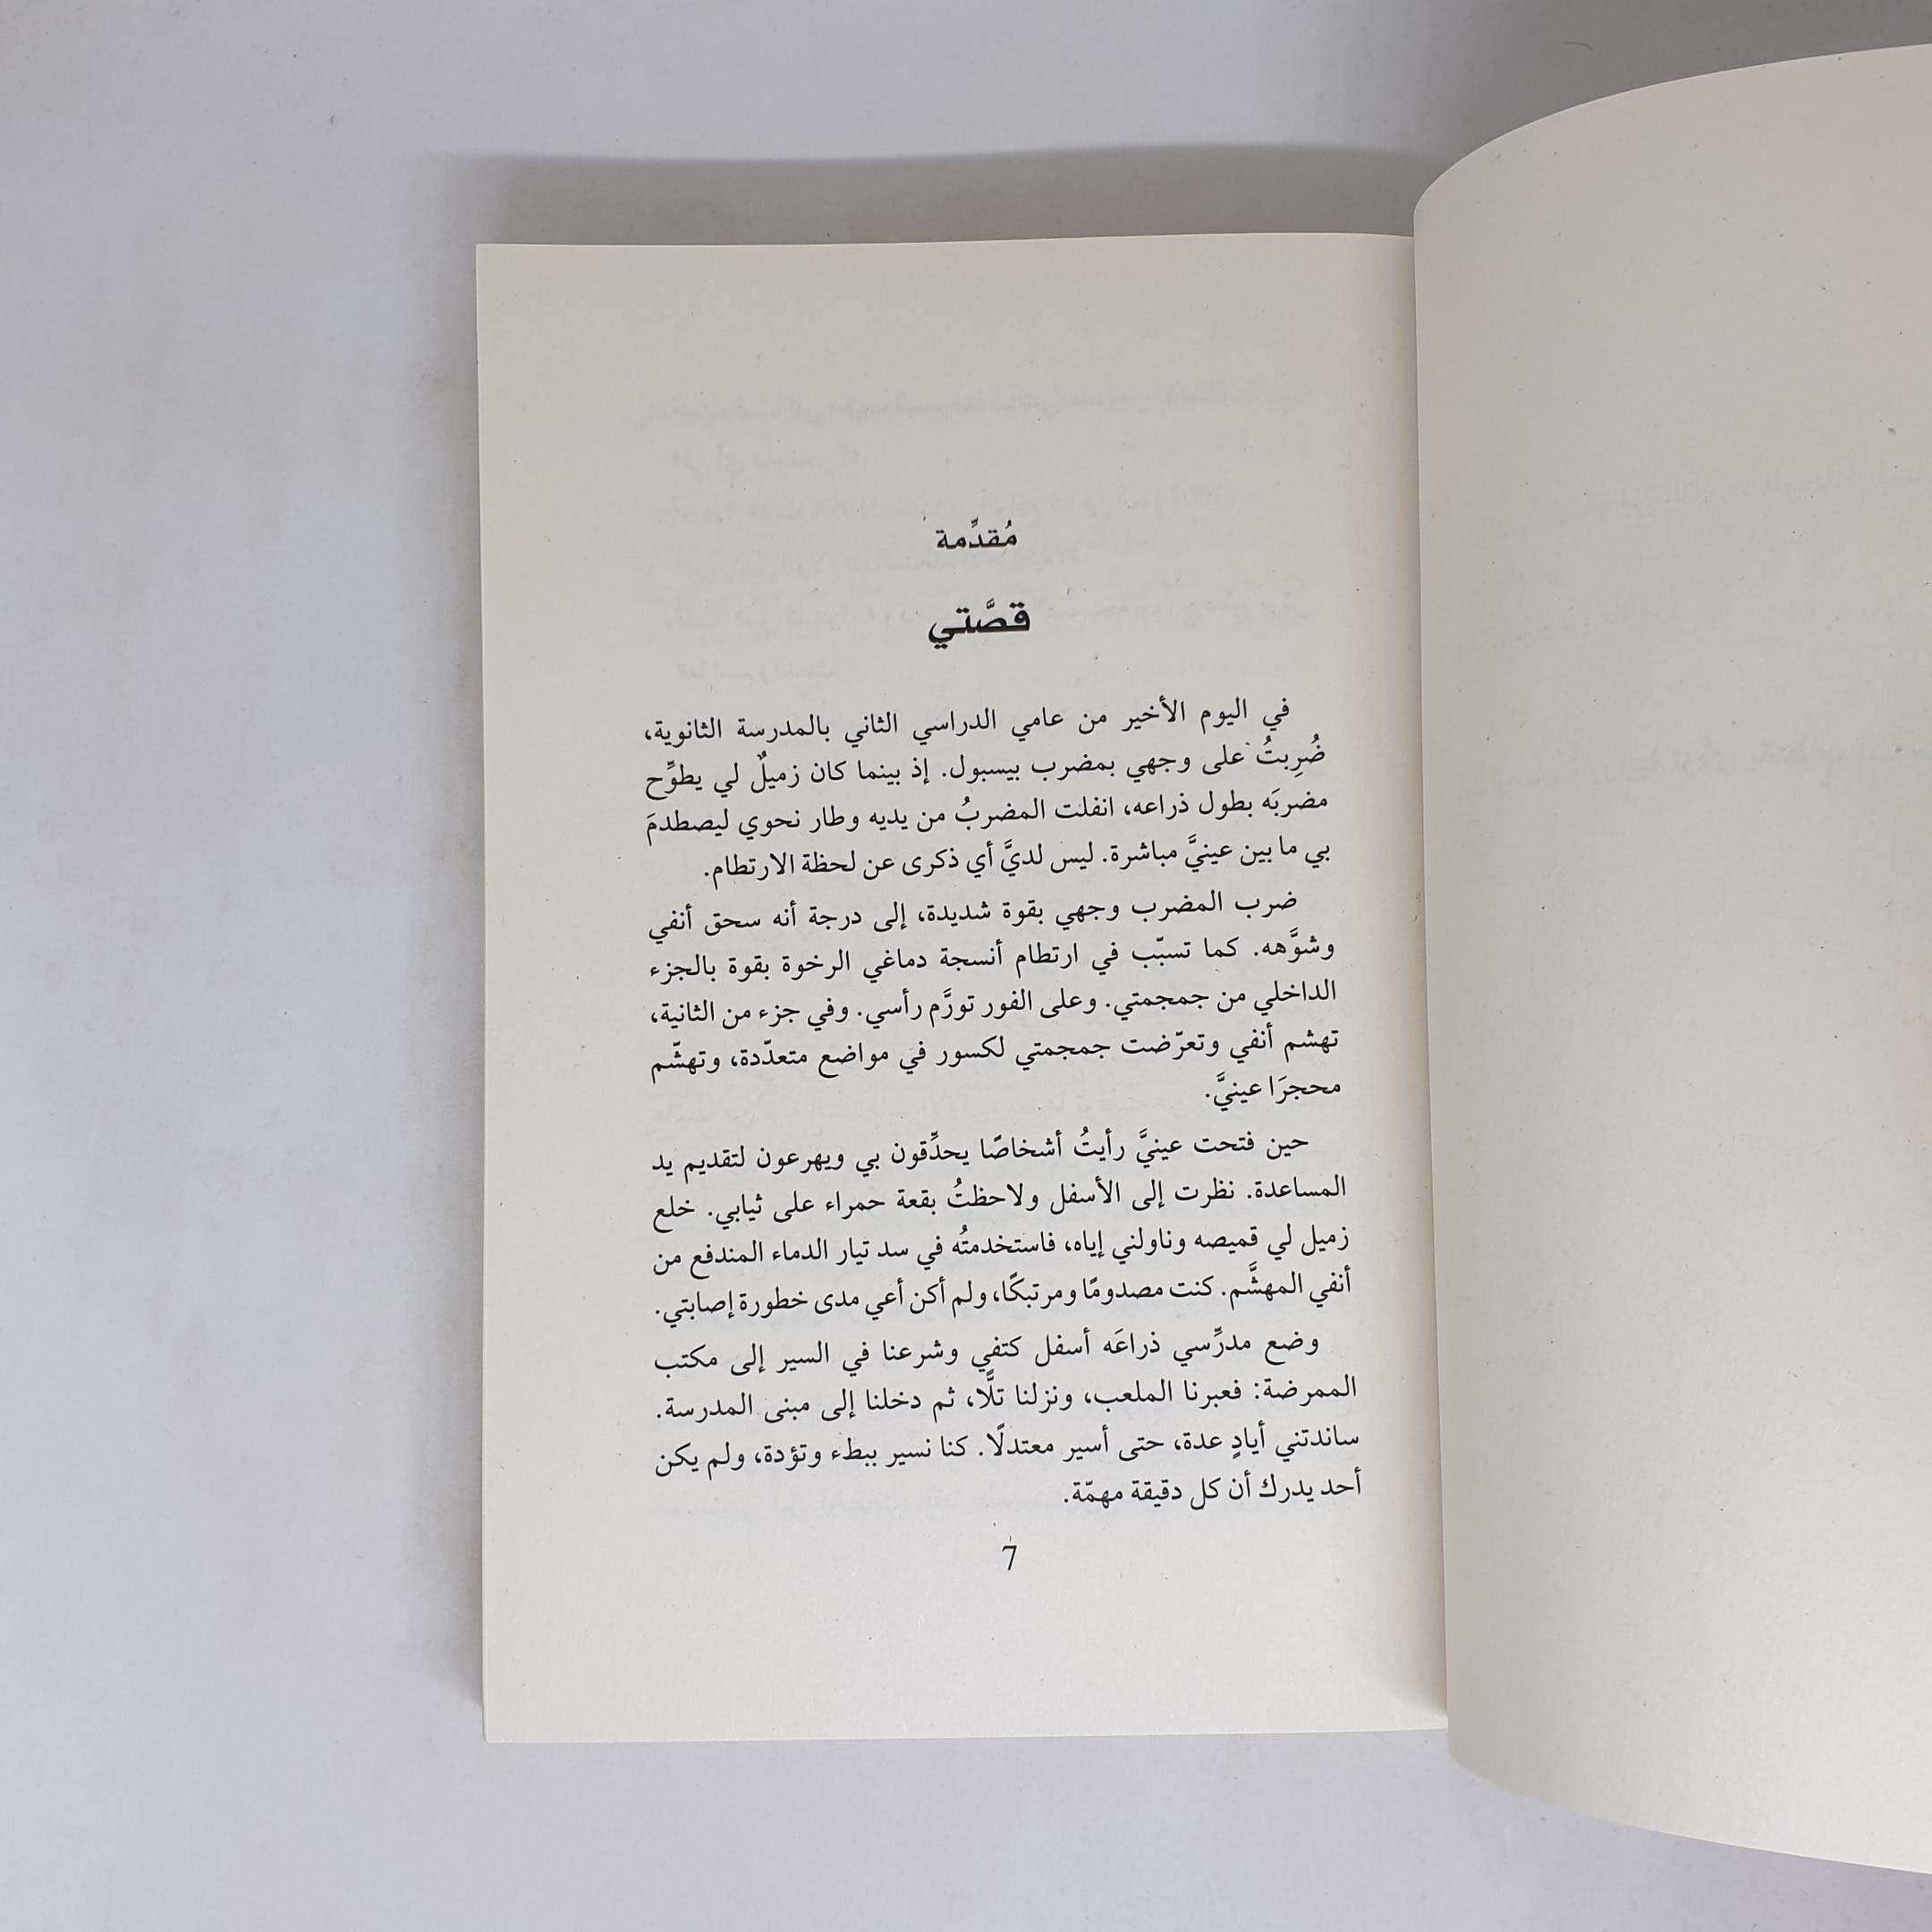 مُقدِّمة
قصَّتي
في اليوم الأخير من عامي الدراسي الثاني بالمدرسة الثانوية،
ضُرِبتُ على وجهي بمضرب بيسبول. إذ بينما كان زميلٌ لي يطوِّح
مضربَه بطول ذراعه، انفلت المضربُ من يديه وطار نحوي ليصطدمَ
بي ما بين عينيَّ مباشرة. ليس لديَّ أي ذكرى عن لحظة الارتطام.
ضرب المضرب وجهي بقوة شديدة، إلى درجة أنه سحق أنفي
وشوَّهه. كما تسبّب في ارتطام أنسجة دماغي الرخوة بقوة بالجزء
الداخلي من جمجمتي. وعلى الفور تورَّم رأسي. وفي جزء من الثانية،
تهشم أنفي وتعرّضت جمجمتي لكسور في مواضع متعدّدة، وتهشّم
محجرَا عينيَّ.
حين فتحت عينيَّ رأيتُ أشخاصًا يحدِّقون بي ويهرعون لتقديم يد
المساعدة. نظرت إلى الأسفل ولاحظتُ بقعة حمراء على ثيابي. خلع
زميل لي قميصه وناولني إياه، فاستخدمتُه في سد تيار الدماء المندفع من
أنفي المهشَّم. كنت مصدومًا ومرتبكًا، ولم أكن أعي مدى خطورة إصابتي.
وضع مدرِّسي ذراعَه أسفل كتفي وشرعنا في السير إلى مكتب
الممرضة: فعبرنا الملعب، ونزلنا تلًّا، ثم دخلنا إلى مبنى المدرسة.
ساندتني أيادٍ عدة، حتى أسير معتدلًا. كنا نسير ببطء وتؤدة، ولم يكن
أحد يدرك أن كل دقيقة مهمّة.
7